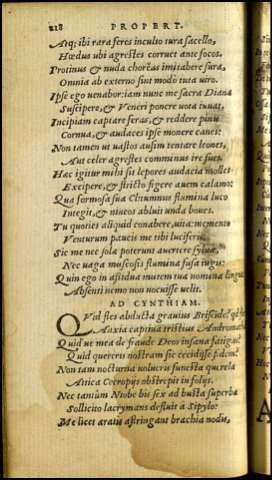 218 PROPERT.
Atq; ibi rara feres inculto tura sacello,
Hœdus ubi agrestes corruet ante focos.
Protinus & nuda choreas imitabere sura,
Omnia ab externo sint modò tuta uiro.
Ipse ego uenabor: iam nunc me sacra Dianæ
Suscipere, & Veneri ponere uota iuuat.
Incipiam captare feras, & reddere pinu
Cornua, & audaces ipse monere canes:
Non tamen ut uastos ausim tentare leones,
Aut celer agrestes comminus ire sues.
Hæc igitur mihi sit lepores audacia molles
Excipere, & stricto figere auem calamo:
Qua formosa sua Clitumnus flumina luco
Integit, & niueos abluit unda boues.
Tu quoties aliquid conabere, uita: memento
Venturum paucis me tibi luciferis.
Sic me nec solæ poterunt auertere syluæ,
Nec uaga muscosis flumina fusa iugis:
Quin ego in assidua mutem tua nomina lingua:
Absenti nemo non nocuisse uelit.
AD CYNTHIAM.
Quid fles abducta grauius Briseide? quid fles
Anxia captiua tristius Andromacha?
Quid ue mea de fraude Deos insana fatigas?
Quid quereris nostram sic cecidisse fidem?
Non tam nocturna uolucris funesta querela
Attica Cecropijs obstrepit in folijs.
Nec tantùm Niobe bis sex ad busta superba
Sollicito lacrymans defluit à Sipylo:
Me licet æratis astringant brachia nodis,